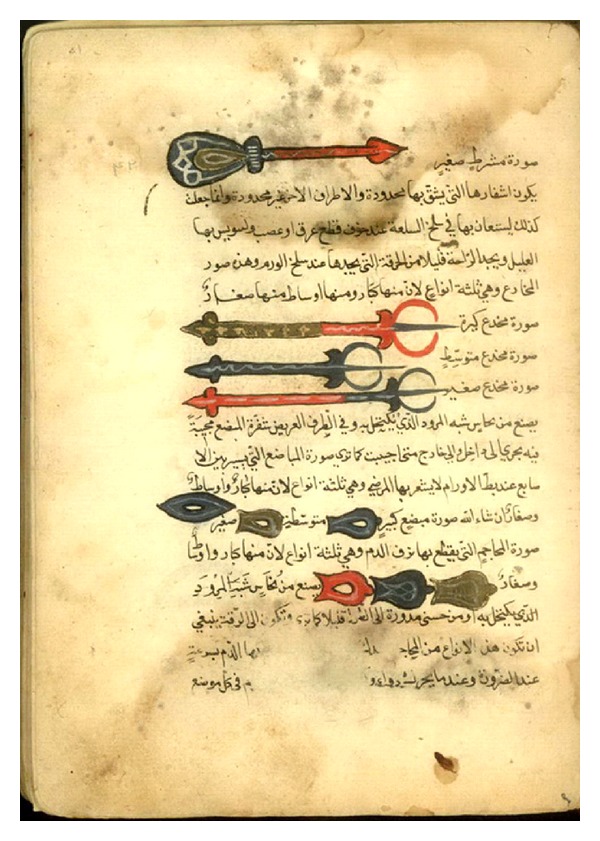 صورة مشرط صغير
يكون اشفارها التى يشق بها محدودة والاطراف الاخر غير محدودة وانما جعلت
كذلك ليستعان بها فى سلخ السلعة عند خوف قطع عرق او عصب وليونس بها
العليل ويجد الراحة قليلا من الحرقة التى يجدها عند سلخ الورم وهذه صور
المخادع وهى ثلثة انواع لان منها كبار ومنها اوساط ومنها صغار
صورة مخدع كبيرة
صورة مخدع متوسط
صورة مخدع صغير
يصنع من نحاس شبه المرود الذى يكتحل به وفى الطرف العريض شفرة المبضع مخبية
فيه يجرى الى داخل الى خارج متى احببت كما ترى صورة المباضع التى يستر بين الا
صابع عند بط الاورام لا يشعر بها المرضى وهى ثلثة انواع لان منها كبار واوساط
وصغار ان شاء الله صورة مبضع كبير متوسطين صغير
صورة المحاجم التى يقطع بها نزف الدم وهى ثلثة انواع لان منها كبار واوساط
وصغار يصنع من نحاس شبه المرود
الذى يكتحل به او من صينى مدورة الى الطول قليلا كما ترى وتكون الى الرقة ينبغى
ان تكون هذه الانواع من المحاجم بها الدم بسرعة
عند الضرورة وعندما يحضرك دواء فى كل موضع